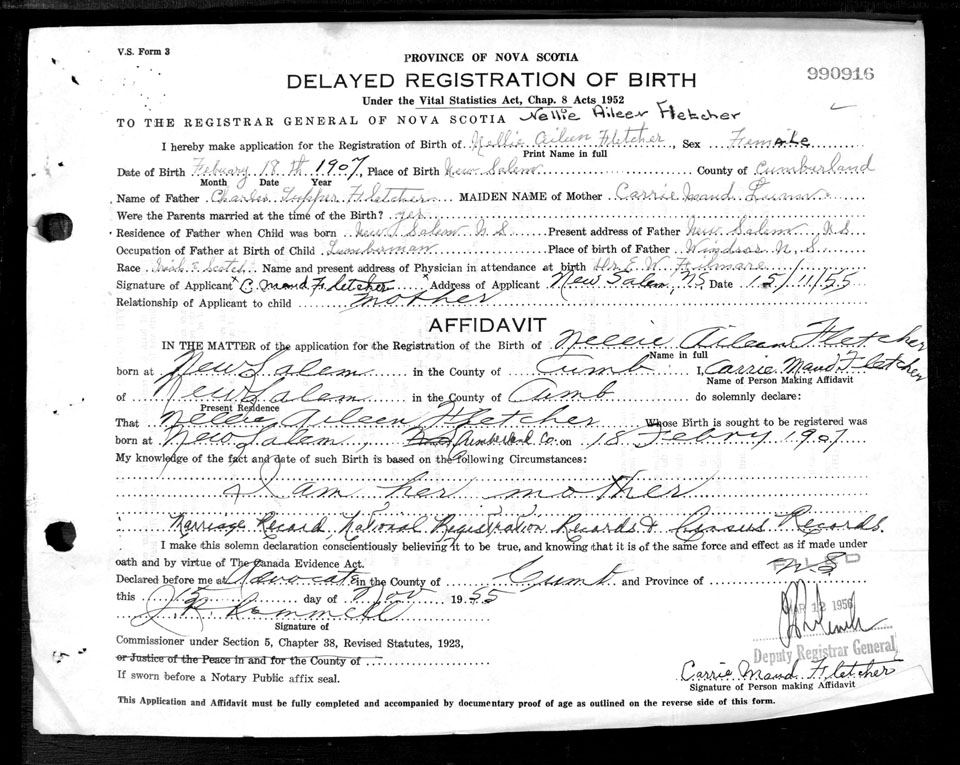 V.S. Form 3
PROVINCE OF NOVA SCOTIA
DELAYED REGISTRATION OF BIRTH
990916
Under the Vital Statistics Act, Chap. 8 Acts 1952
TO THE REGISTRAR GENERAL OF NOVA SCOTIA Nellie Aileen Fletcher
I hereby make application for the Registration of Birth of Nellie Aileen Fletcher Sex Female
Print Name in full
Date of Birth Febuary 18th 1907, Place of Birth New Salem County of Cumberland
Month Date Year
Name of Father Charles Tupper Fletcher MAIDEN NAME of Mother Carrie Maud
Were the Parents married at the time of the Birth? yes
Residence of Father when Child was born New Salem N S Present address of Father New Salem N S
Occupation of Father at Birth of Child Lumberman Place of birth of Father Windsor N. S
Race Irish & Scotch Name and present address of Physician in attendance at birth Dr E. W.
Signature of Applicant C. Maud Fletcher Address of Applicant New Salem, NS Date 15/11/55
Relationship of Applicant to child mother
AFFIDAVIT
IN THE MATTER of the application for the Registration of the Birth of Nellie Aileen Fletcher
Name in full
born at New Salem in the County of Cumb I, Carrie Maud Fletcher
Name of Person Making Affidavit
of New Salem in the County of Cumb do solemnly declare:
Present Residence
That Nellie Aileen Fletcher Whose Birth is sought to be registered was
born at New Salem, Cumberland Co. on 18 Febry 1907
My knowledge of the fact and date of such Birth is based on the following Circumstances:
I am her mother
Marriage Record, National Registration Records & Census Records.
I make this solemn declaration conscientiously believing it to be true, and knowing that it is of the same force and effect as if made under
oath and by virtue of The Canada Evidence Act.
Declared before me at Advocate in the County of Cumb. and Province of N S
FILED
this 15 day of Nov 1955
MAR 12 1956
Signature of
Commissioner under Section 5, Chapter 38, Revised Statutes, 1923,
Deputy Registrar General
or Justice of the Peace in and for the County of
Carrie Maud Fletcher
If sworn before a Notary Public affix seal.
Signature of Person making Affidavit
This Application and Affidavit must be fully completed and accompanied by documentary proof of age as outlined on the reverse side of this form.